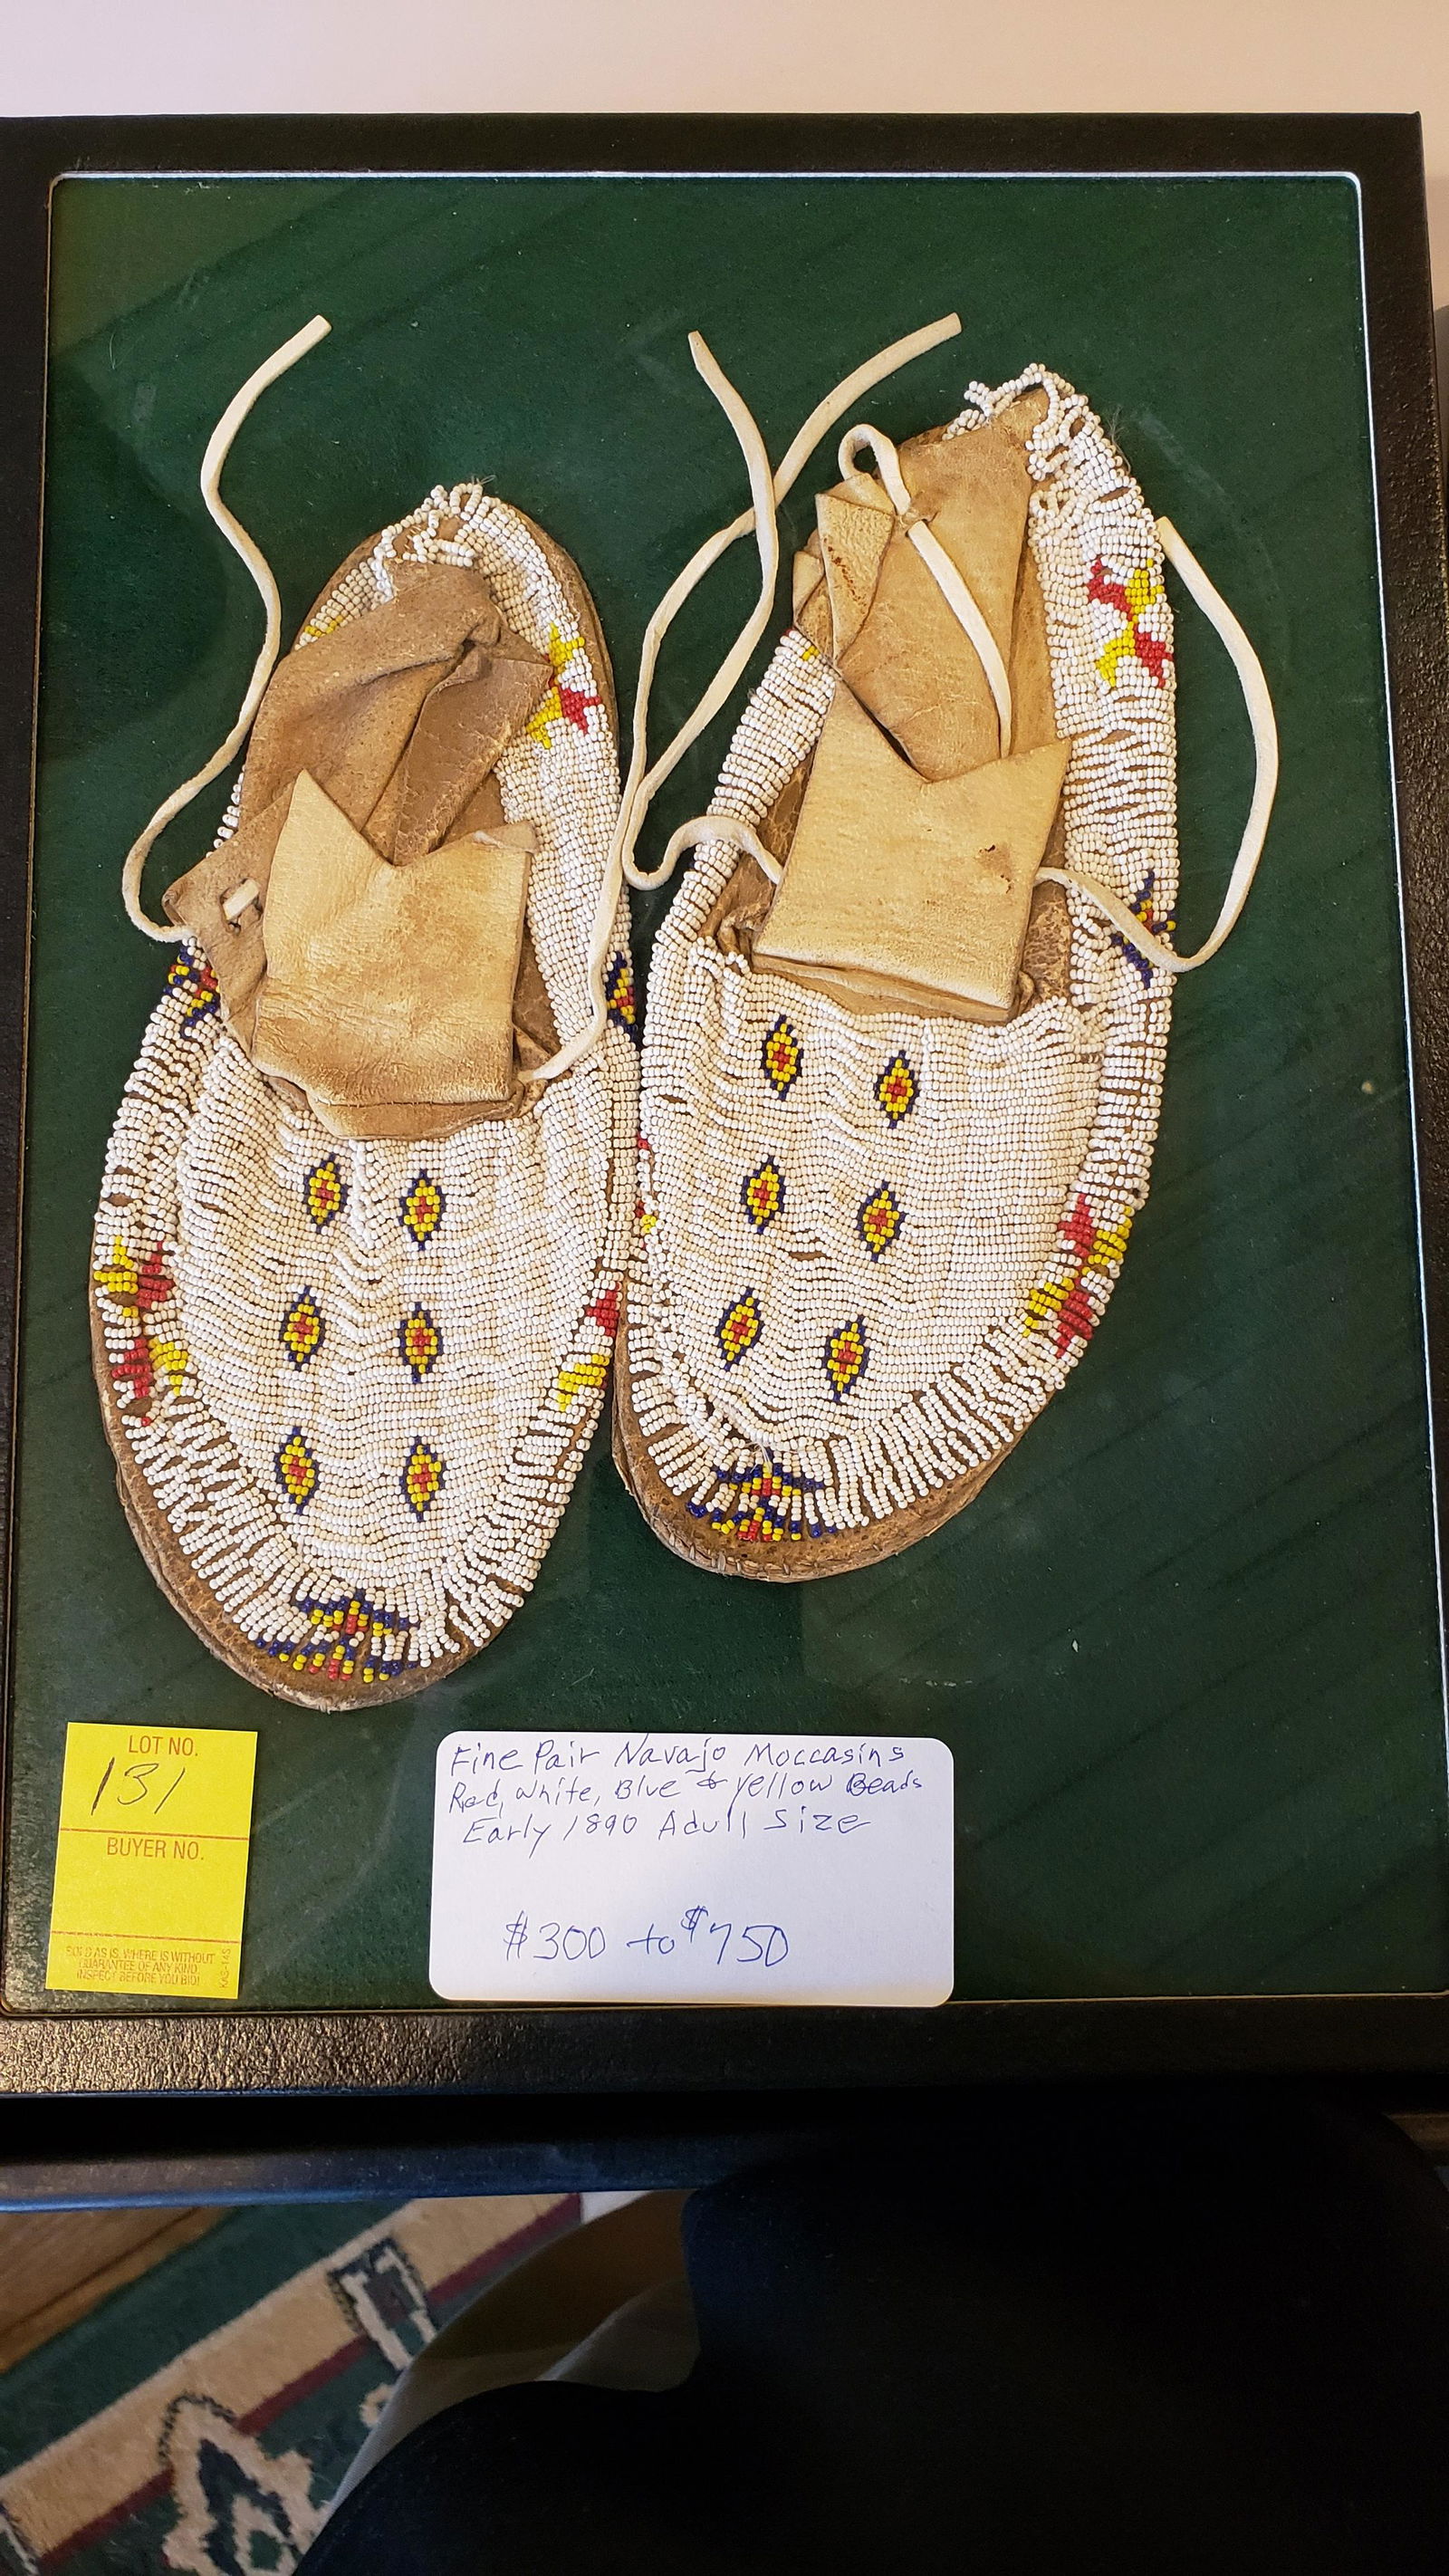 LOT NO.
131
BUYER NO.
SOLD AS IS, WHERE IS WITHOUT
GUARANTEE OF ANY KIND.
INSPECT BEFORE YOU BID!
Fine Pair Navajo Moccasins
Red, White, Blue & Yellow Beads
Early 1890 Adult Size
$300 to $750